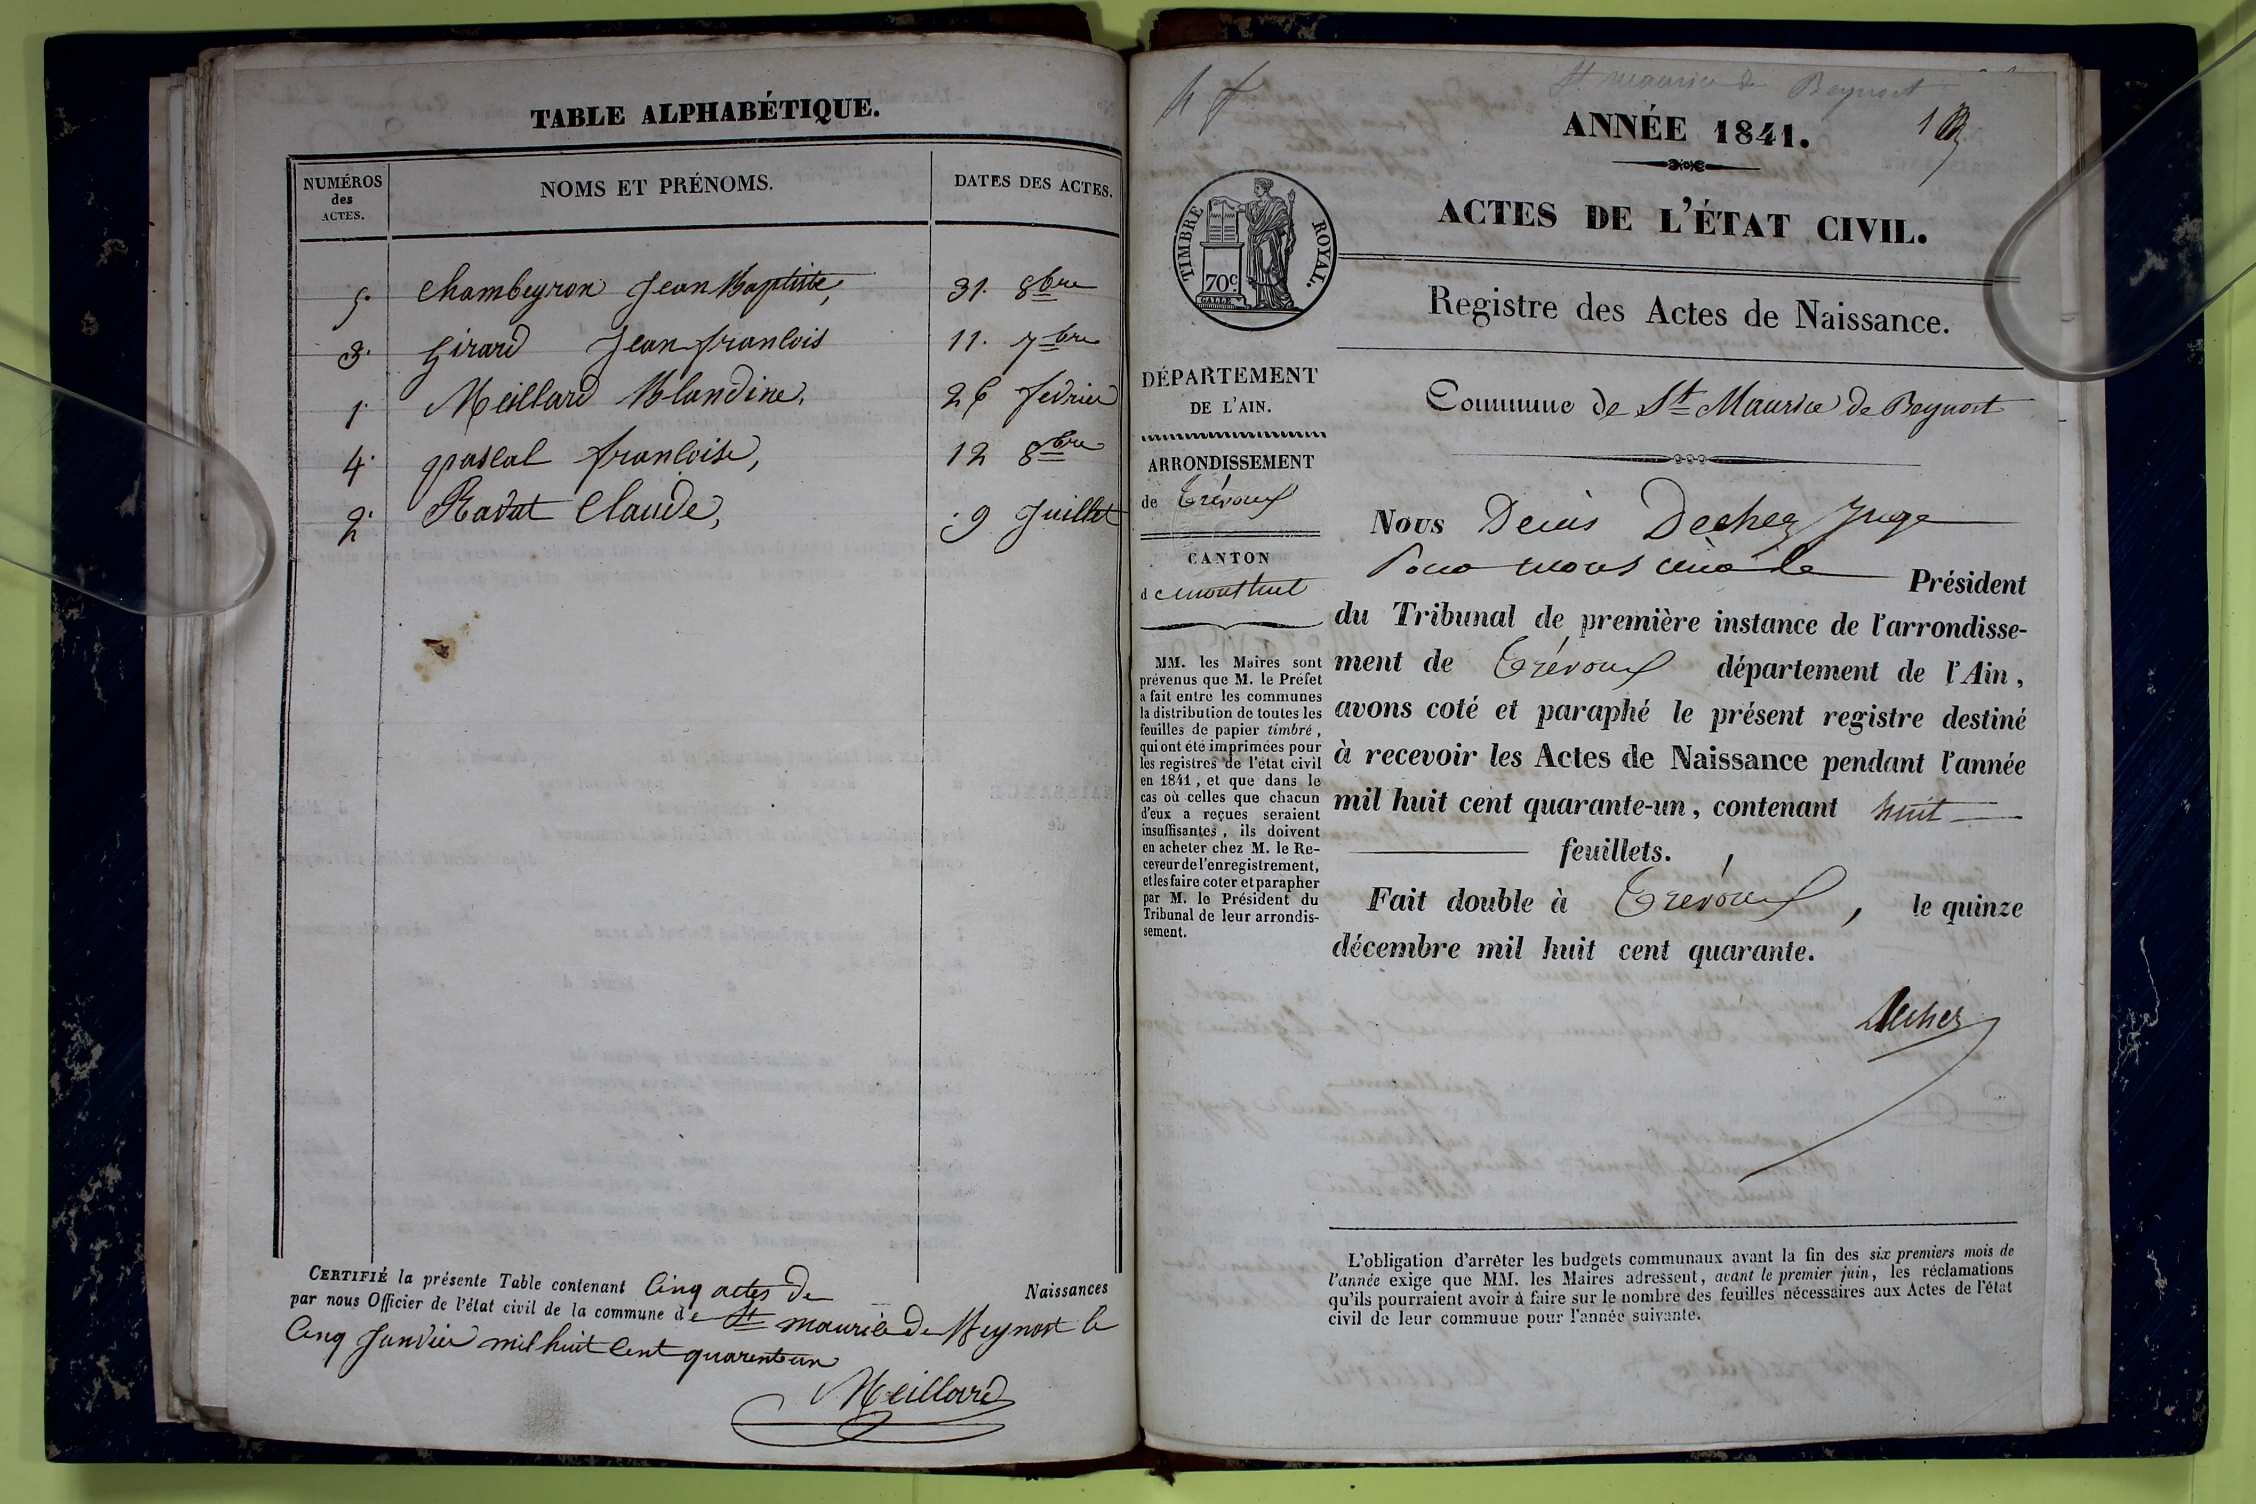 TABLE ALPHABÉTIQUE.
NUMÉROS
des
ACTES.
NOMS ET PRÉNOMS.
DATES DES ACTES.
5. Chambeyron Jean Baptiste, 31. 8bre
3. Girard Jean francois 11. 7bre
1. Meillard Blandine, 26 fevrier
4. pascal francoise, 12 8bre
2. Ravat Claude, 9 Juillet
CERTIFIÉ la présente Table contenant Cinq actes de Naissances
par nous Officier de l'état civil de la commune de St maurice de Beynost le
Cinq Janvier mil huit Cent quarente un
Meillard
St maurice de Beynost
1
ANNÉE 1841.
ACTES DE L'ÉTAT CIVIL.
TIMBRE ROYAL.
70c.
Registre des Actes de Naissance.
DÉPARTEMENT
DE L'AIN.
ARRONDISSEMENT
de Trévoux
CANTON
d montluel
MM. les Maires sont
prévenus que M. le Préfet
a fait entre les communes
la distribution de toutes les
feuilles de papier timbré,
qui ont été imprimées pour
les registres de l'état civil
en 1841, et que dans le
cas où celles que chacun
d'eux a reçues seraient
insuffisantes, ils doivent
en acheter chez M. le Re-
ceveur de l'enregistrement,
et les faire coter et parapher
par M. le Président du
Tribunal de leur arrondis-
sement.
Commune de St Maurice de Beynost
Nous Denis Dechez Juge
Président
du Tribunal de première instance de l'arrondisse-
ment de Trévoux département de l'Ain,
avons coté et paraphé le présent registre destiné
à recevoir les Actes de Naissance pendant l'année
mil huit cent quarante-un, contenant huit
feuillets.
Fait double à Trévoux, le quinze
décembre mil huit cent quarante.
Dechez
L'obligation d'arrêter les budgets communaux avant la fin des six premiers mois de
l'année exige que MM. les Maires adressent, avant le premier juin, les réclamations
qu'ils pourraient avoir à faire sur le nombre des feuilles nécessaires aux Actes de l'état
civil de leur commune pour l'année suivante.